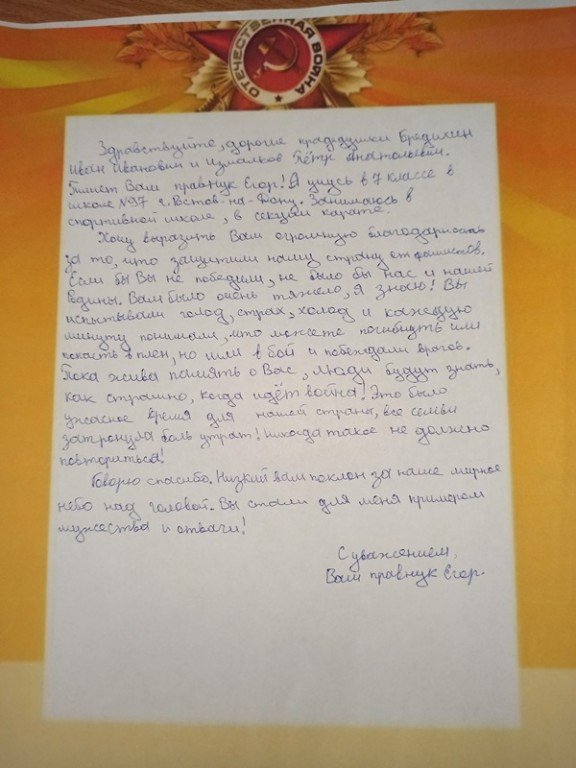 ОТЕЧЕСТВЕННАЯ ВОЙНА
Здравствуйте, дорогие прадедушки Бредихин
Иван Иванович и Измалков Пётр Анатольевич.
Пишет Вам правнук Егор! Я учусь в 7 классе в
школе №97 г. Ростов-на-Дону. Занимаюсь в
спортивной школе, в секции каратэ.
Хочу выразить Вам огромную благодарность
за то, что защитили нашу страну от фашистов.
Если бы Вы не победили, не было бы нас и нашей
Родины. Вам было очень тяжело, я знаю! Вы
испытывали голод, страх, холод и каждую
минуту понимали, что можете погибнуть или
попасть в плен, но шли в бой и побеждали врагов.
Пока жива память о Вас, люди будут знать,
как страшно, когда идёт война! Это было
ужасное время для нашей страны, все семьи
затронула боль утрат! Никогда такое не должно
повториться!
Говорю спасибо. Низкий вам поклон за наше мирное
небо над головой. Вы стали для меня примером
мужества и отваги!
С уважением,
Ваш правнук Егор.